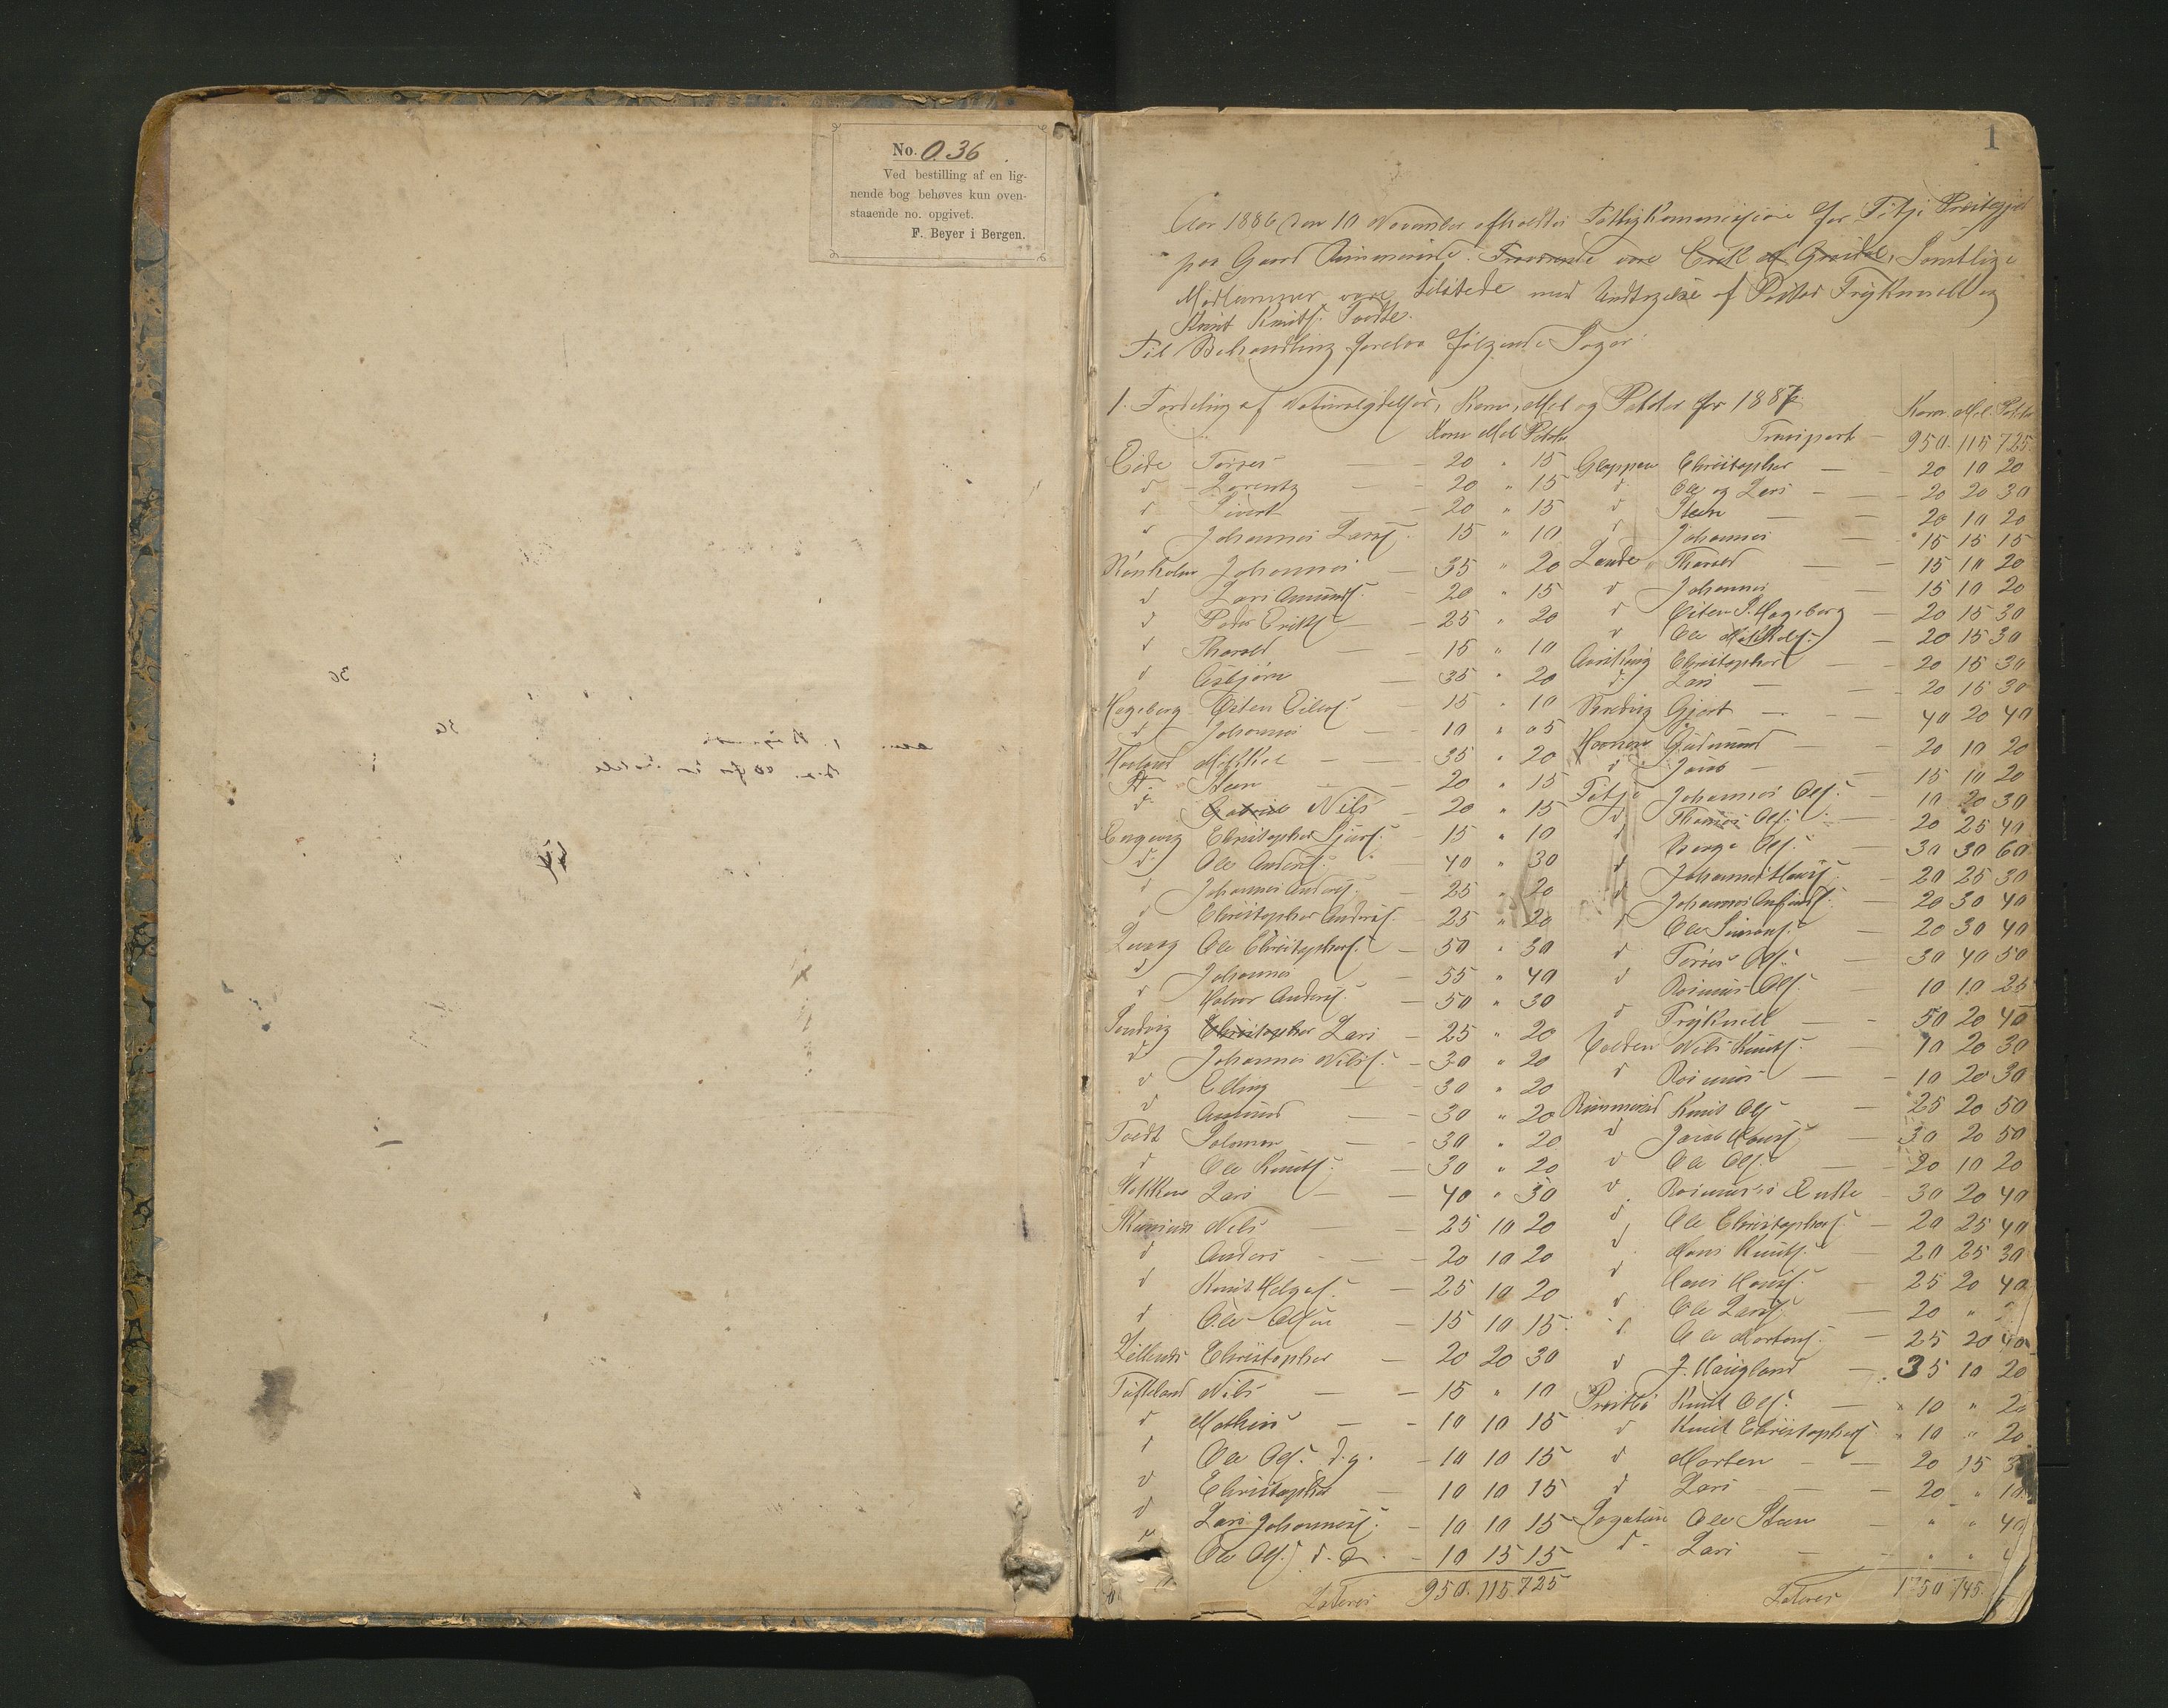 No. 036
Ved bestilling af en lig-
nende bog behøves kun oven-
staaende no. opgivet.
F. Beyer i Bergen.
1
Aar 1886 den 10 November afholdtes Fattigkommission for Fitje Præstegjeld
paa Gaard Rimmereide. Fraværende vare Erik af Samtlige
Medlemmer vare tilstede med Undtagelse af Pastor Frÿknvell og
Knut Knuts.
Til Behandling forelaa følgende Sager
1. Fordeling af Naturalydelser, Korn, Mel og Poteter for 1887
Korn Mel Poteter
Korn Mel Potet Transport 950. 115 725
Eide Torres 20 " 15 Gloppen Christopher 20 10 20
d Lorentz 20 " 15 d Ole og Lars 20 20 30
d Sivert 20 " 15 d Steen 20 10 20
d Johannes Larss. 15 " 10 d Johannes 15 15 15
Johannes 35 " 20 Lande Tharald 15 10 20
d Lars Amunds. 20 " 15 d Johannes 15 10 20
d Peder Eriks. 25 " 20 d Østen S. Hageberg 20 15 30
d Tharald 15 " 10 d Ole 20 15 30
d Asbjørn 35 " 20 Christopher 20 15 30
Hageberg Østen 15 " 10 d Lars 20 15 30
d Johannes 10 " 05 Gjert 40 20 40
Havland Mikkel 35 " 20 Gudmund 20 10 20
Steen 20 " 15 d Jacob 15 10 20
d Nils 20 " 15 Fitje Johannes Ols. 10 20 30
Engevig Christopher Sjurs. 15 " 10 d Thomas Ols. 20 25 40
d Ole Anders. 40 " 30 d Berge Ols. 30 30 60
d Johannes Anders. 25 " 20 d Johannes Hans. 20 25 30
d Christopher Anders. 25 " 20 d Johannes 20 30 40
Ole Christophers. 50 " 30 d Ole Simons. 20 30 40
d Johannes 55 " 40 d Torres Ols. 30 40 50
d Halvor Anders. 50 " 30 d Rasmus Ols. 10 10 25
Sandvig Christopher Lars 25 " 20 d Frÿknvell 50 20 40
d Johannes Nils. 30 " 20 Nils Knuts. 10 20 30
d Elling 30 " 20 d Rasmus 10 20 30
d Amund 30 " 20 Rimmereid Knut Ols. 25 20 50
Salomon 30 " 20 d Jacob Hans. 30 20 50
d Ole Knuts. 30 " 20 d Ole Ols. 20 10 20
Lars 40 " 30 d Rasmus's Enke 30 20 40
Nils 25 10 20 d Ole Christophers. 20 25 40
d Anders 20 10 20 d Hans Knuts. 20 25 30
d Knut Helges. 25 10 20 d Hans Hans. 25 20 40
d Ole Olsen 15 10 15 d Ole Lars. 20 " "
Christopher 20 20 30 d Ole Mortens. 25 20 40
Tufteland Nils 15 " 10 d J. Haugland 35 10 20
d Mathias 10 10 15 Præstbø Knut Ols. 10 " 20
d Ole Ols. d. y. 10 10 15 d Knut Christophers. 10 " 20
d Christopher 10 10 15 d Morten 20 15
d Lars Johannes. 10 10 15 d Lars 20 " 10
d Ole Ols. d. æ. 10 15 15 Ole Steen " " 40
d Lars " "
Lateres 950. 115. 725 Lateres 1750 745